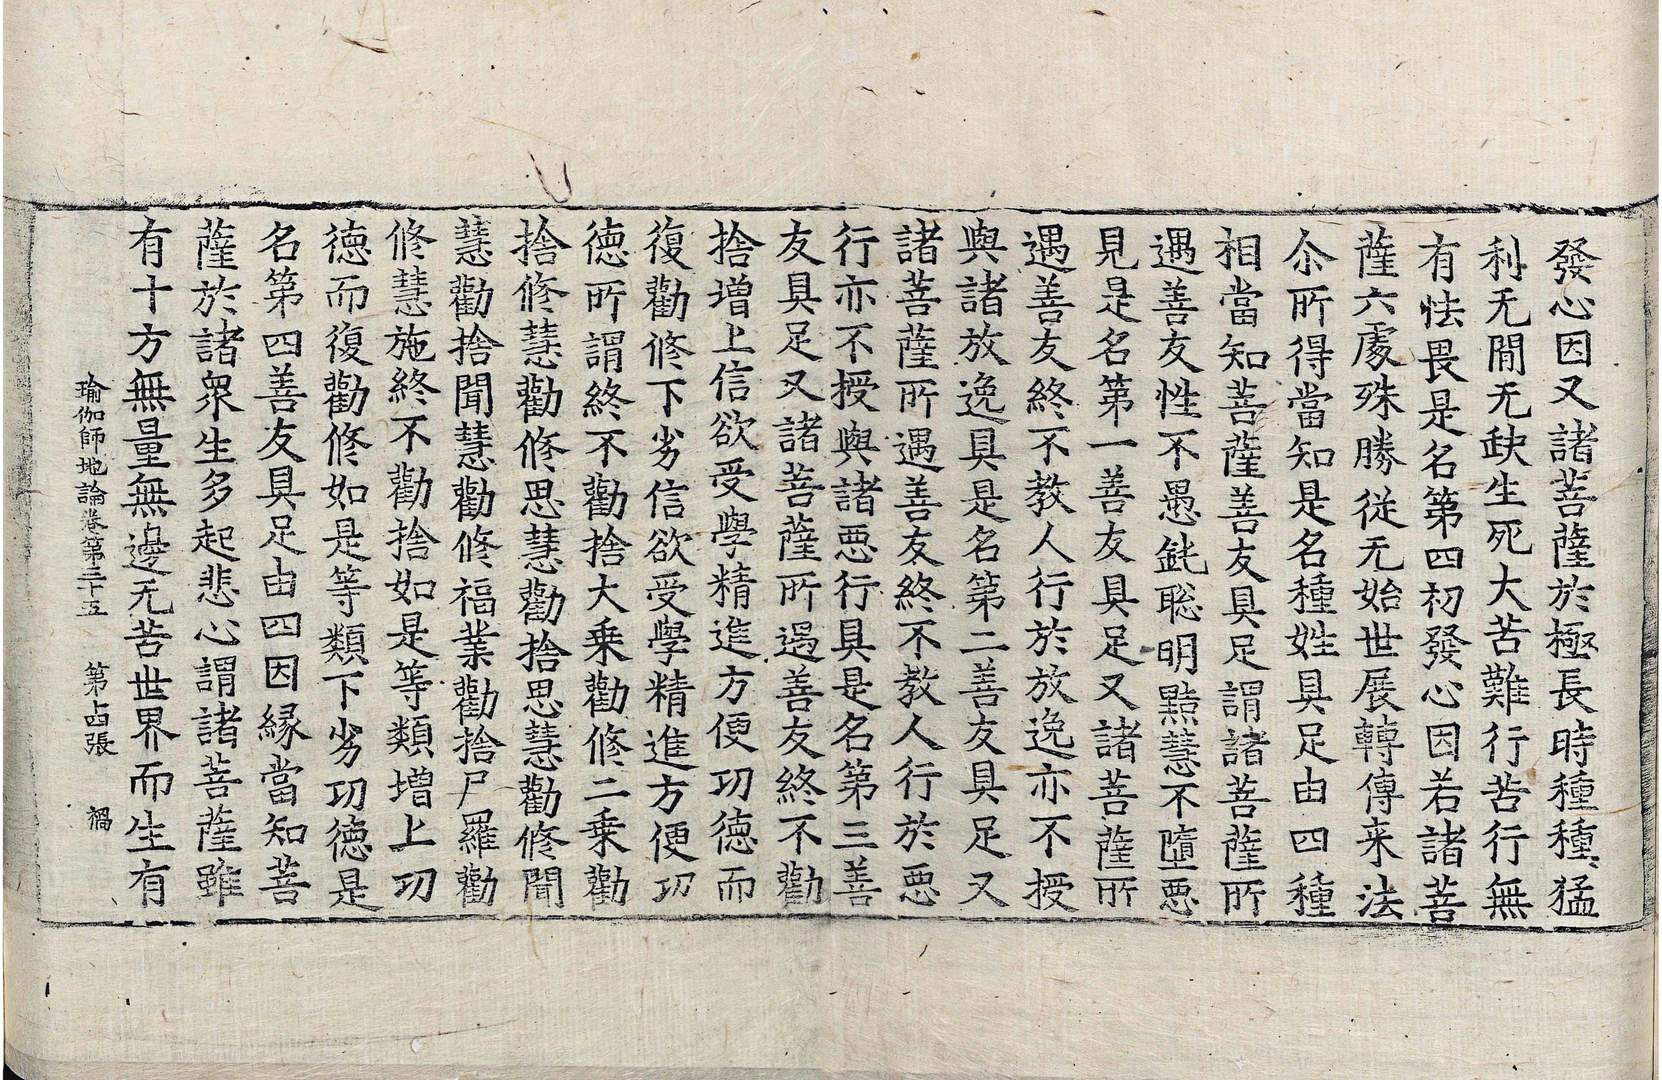 發心因又諸菩薩於極長時種種猛
利无閒无缺生死大苦難行苦行無
有怯畏是名第四初發心因若諸菩
薩六處殊勝從无始世展轉傳来法
尒所得當知是名種姓具足由四種
相當知菩薩善友具足謂諸菩薩所
遇善友性不愚鈍聡明黠慧不墮惡
見是名第一善友具足又諸菩薩所
遇善友終不教人行於放逸亦不授
與諸放逸具是名第二善友具足又
諸菩薩所遇善友終不教人行於惡
行亦不授與諸惡行具是名第三善
友具足又諸菩薩所遇善友終不勸
捨增上信欲受學精進方便功德而
復勸修下劣信欲受學精進方便功
德所謂終不勸捨大乗勸修二乗勸
捨修慧勸修思慧勸捨思慧勸修聞
慧勸捨聞慧勸修福業勸捨尸羅勸
修慧施終不勸捨如是等類增上功
德而復勸修如是等類下劣功德是
名第四善友具足由四因緣當知菩
薩於諸衆生多起悲心謂諸菩薩雖
有十方無量無邊无苦世界而生有
瑜伽師地論卷第三十五 第占張 禍